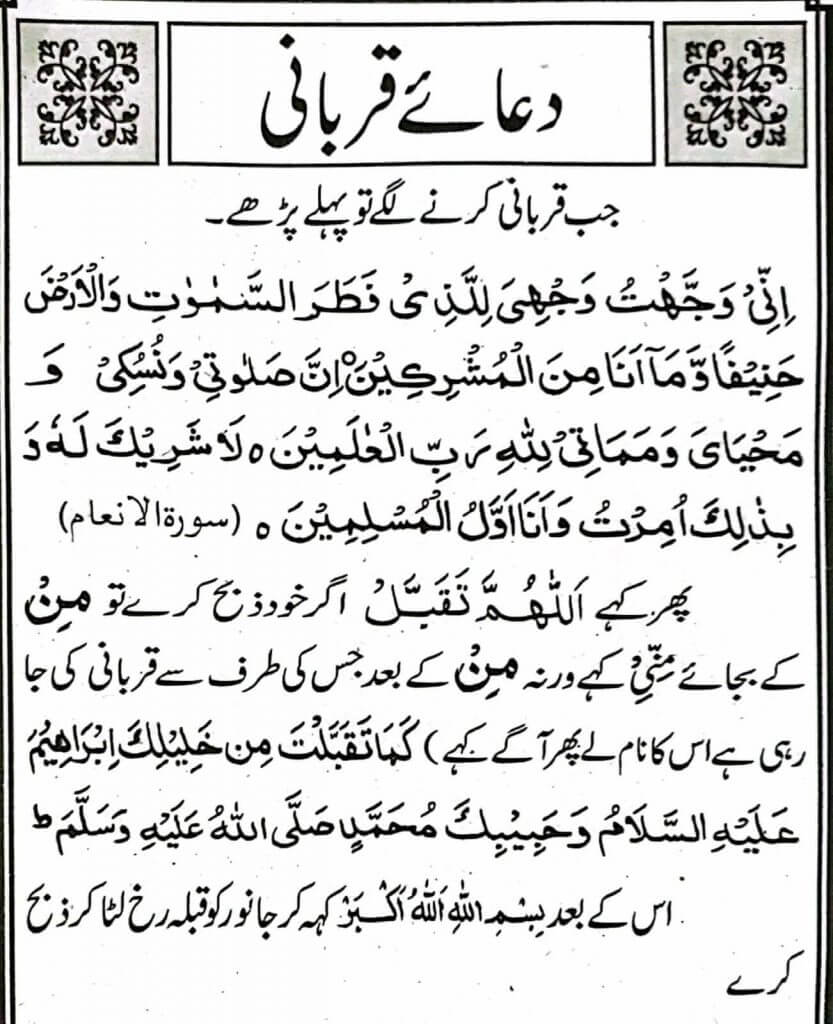 دعائے قربانی
جب قربانی کرنے لگے تو پہلے پڑھے۔
اِنِّیْ وَجَّهْتُ وَجْهِیَ لِلَّذِیْ فَطَرَ السَّمٰوٰتِ وَالْاَرْضَ
حَنِیْفًا وَّ مَآ اَنَا مِنَ الْمُشْرِكِیْنَ ۝ اِنَّ صَلٰوتِیْ وَنُسُكِیْ وَ
مَحْیَایَ وَمَمَاتِیْ لِلّٰهِ رَبِّ الْعٰلَمِیْنَ ۝ لَا شَرِیْكَ لَهٗ وَ
بِذٰلِكَ اُمِرْتُ وَاَنَا اَوَّلُ الْمُسْلِمِیْنَ ۝ (سورۃ الانعام)
پھر کہے اَللّٰهُمَّ تَقَبَّلْ اگر خود ذبح کرے تو مِنْ
کے بجائے مِنِّیْ کہے ورنہ مِنْ کے بعد جس کی طرف سے قربانی کی جا
رہی ہے اس کا نام لے پھر آگے کہے) كَمَا تَقَبَّلْتَ مِن خَلِیْلِكَ اِبْرَاهِیْمَ
عَلَیْهِ السَّلَامُ وَحَبِیْبِكَ مُحَمَّدٍ صَلَّى اللهُ عَلَیْهِ وَسَلَّمَ ؕ
اس کے بعد بِسْمِ اللهِ اَللهُ اَكْبَرْ کہہ کر جانور کو قبلہ رخ لٹا کر ذبح
کرے